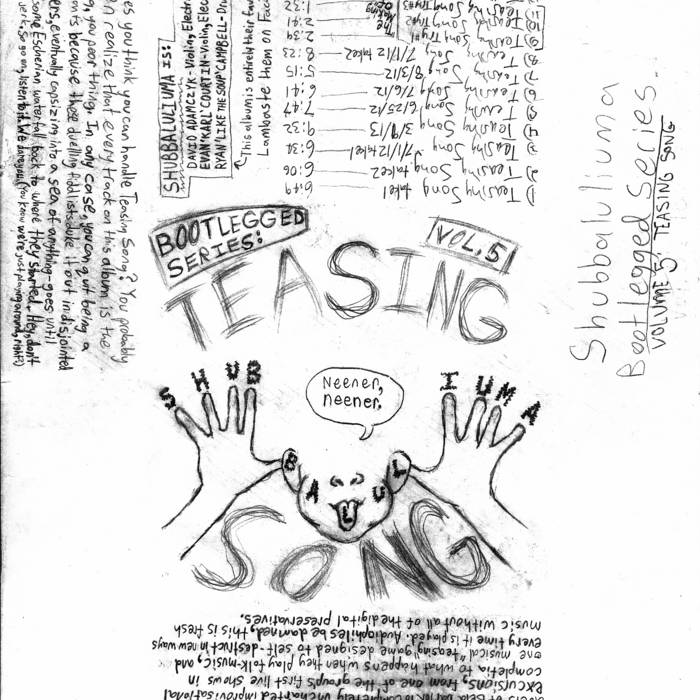 BOOTLEGGED
SERIES:
VOL. 5
TEASING
SHUB
BALUL
IUMA
Neener,
neener.
SONG
Shubbaluliuma
Bootlegged Series.
VOLUME 5: TEASING SONG
SHUBBALULIUMA IS:
DAVID ADAMCZYK - Violin, Electr
EVAN "KARL" COURTIN - Violin, Elec
RYAN "LIKE THE SOUP" CAMPBELL - Dr
This album is entirely their fau
Lambaste them on Fac
1) Teasing Song take1 6:49
2) Teasing Song take2 6:06
3) Teasing Song 7/1/12 take1
4) Teasing Song 3/9/13 9:32
5) Teasing Song 6/25/12 7:47
6) Teasing Song 7/6/12 6:41
7) Teasing Song 8/3/12 5:15
8) Teasing Song 7/17/12 take2 8:23
9) Teasing Song Try#1 2:39
10) Teasing Song Try#2 2:41
11) Teasing Song Try#3 1:32
The Making of
es you think you can handle Teasing Song? You probably
n realize that every track on this album is the
you poor thing. In any case, you can quit being a
nts because these duelling fiddlists duke it out in disjointed
ers, eventually capsizing into a sea of anything-goes until
song Escherian waterfall back to where they started. Hey, don't
verk. So go on, listen to it. We dare you. (You know we're just playing around, right?)
completely uncharted improvisational
excursions, from one of the group's first live shows in
completia to what happens when they play folk music, and
one musical "teasing" game designed to self-destruct in new ways
every time it is played. Audiophiles be damned, this is fresh
music without all of the digital preservatives.